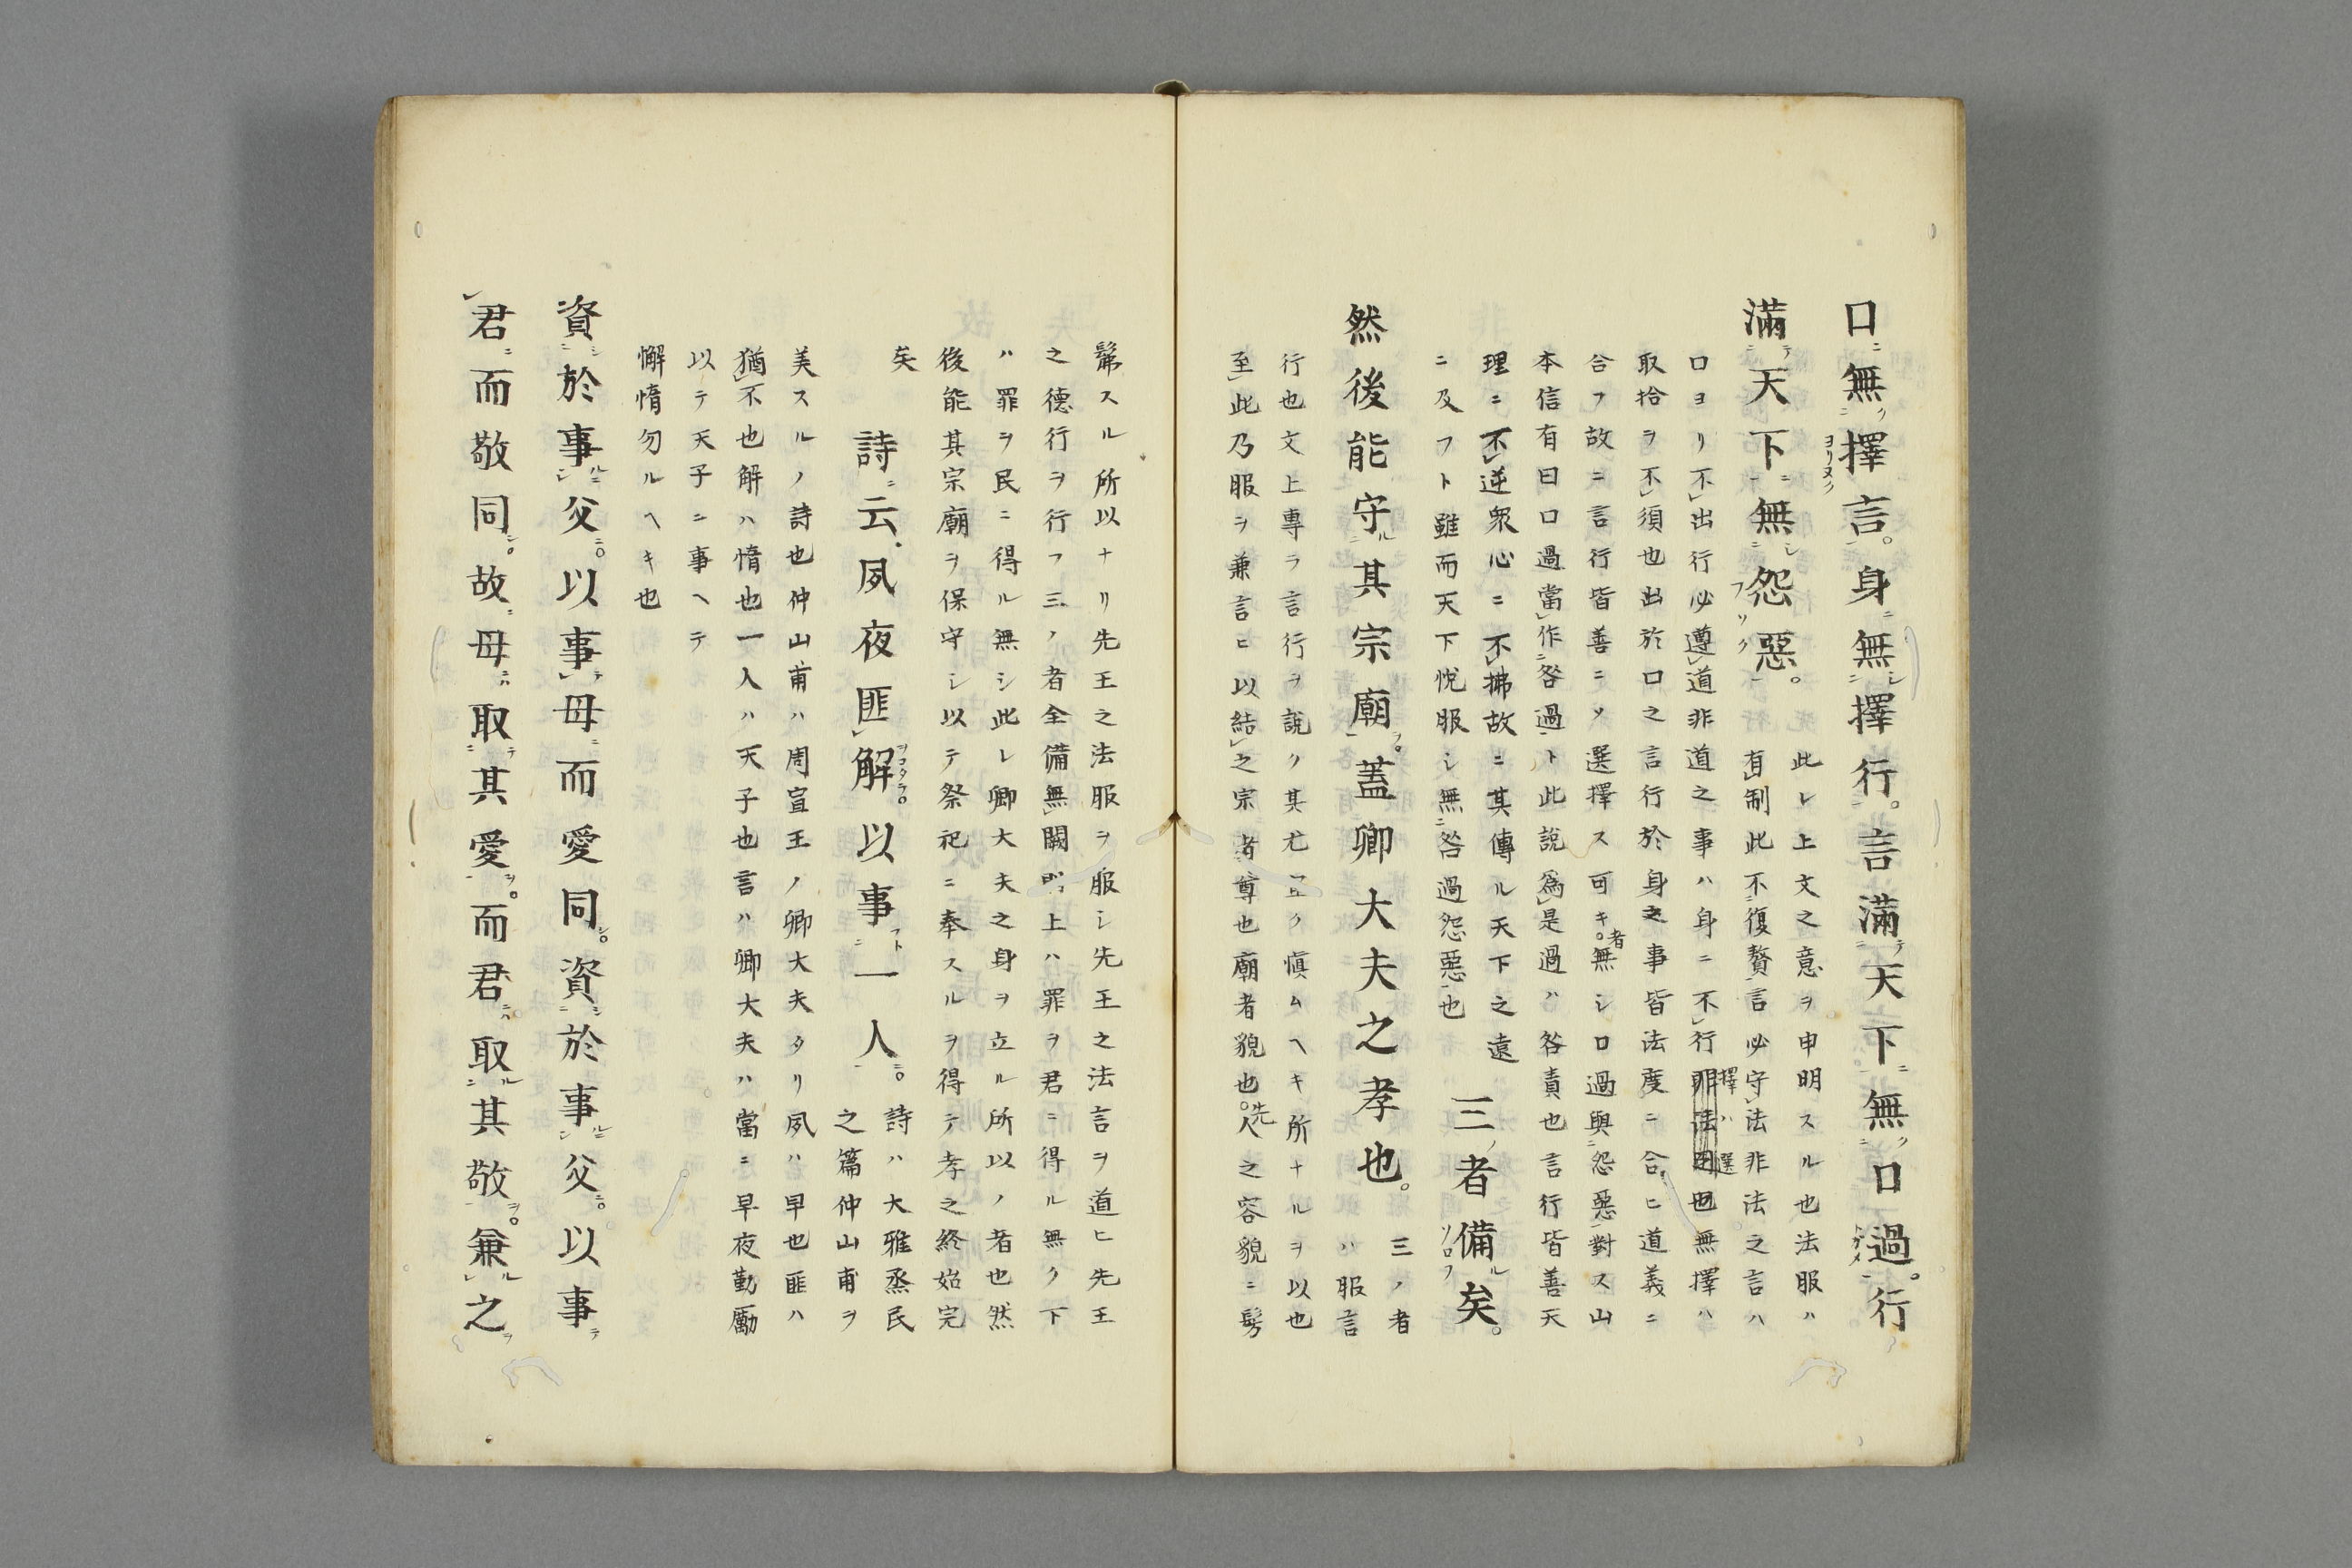 口無擇言。身無擇行。言滿天下無口過。行
滿天下無怨惡。
此レ上文之意ヲ申明スル也法服ハ
有制此不復贅言必守法非法之言ハ
口ヨリ不出行必遵道非道之事ハ身ニ不行擇ハ選也無擇ハ
取捨ヲ不須也出於口之言行於身之事皆法度ニ合ヒ道義ニ
合フ故ニ言行皆善ニソ選擇ス可キ者。無シ口過與怨惡對ス山
本信有曰口過當作咎過ト此說爲是過ハ咎責也言行皆善天
理ニ不逆衆心ニ不拂故ニ其傳ル天下之遠
ニ及フト雖而天下悅服シ無咎過怨惡也
三者備矣。
然後能守其宗廟。蓋卿大夫之孝也。
三ノ者
ハ服言
行也文上專ラ言行ヲ說ク其尤宜ク愼ムヘキ所ナルヲ以也
至此乃服ヲ兼言ヒ以結之宗者尊也廟者貌也。先人之容貌ニ髣
髴スル所以ナリ先王之法服ヲ服シ先王之法言ヲ道ヒ先王
之德行ヲ行フ三ノ者全備無闕明上ハ罪ヲ君ニ得ル無ク下
ハ罪ヲ民ニ得ル無シ此レ卿大夫之身ヲ立ル所以ノ者也然
後能其宗廟ヲ保守シ以テ祭祀ニ奉スルヲ得テ孝之終始完
矣
詩云夙夜匪解。以事一人。
詩ハ大雅烝民
之篇仲山甫ヲ
美スルノ詩也仲山甫ハ周宣王ノ卿大夫タリ夙ハ早也匪ハ
猶不也解ハ惰也一人ハ天子也言ハ卿大夫ハ當ニ早夜勤勵
以テ天子ニ事ヘテ
懈惰勿ルヘキ也
資於事父。以事母而愛同。資於事父。以事
君而敬同。故母取其愛。而君取其敬。兼之